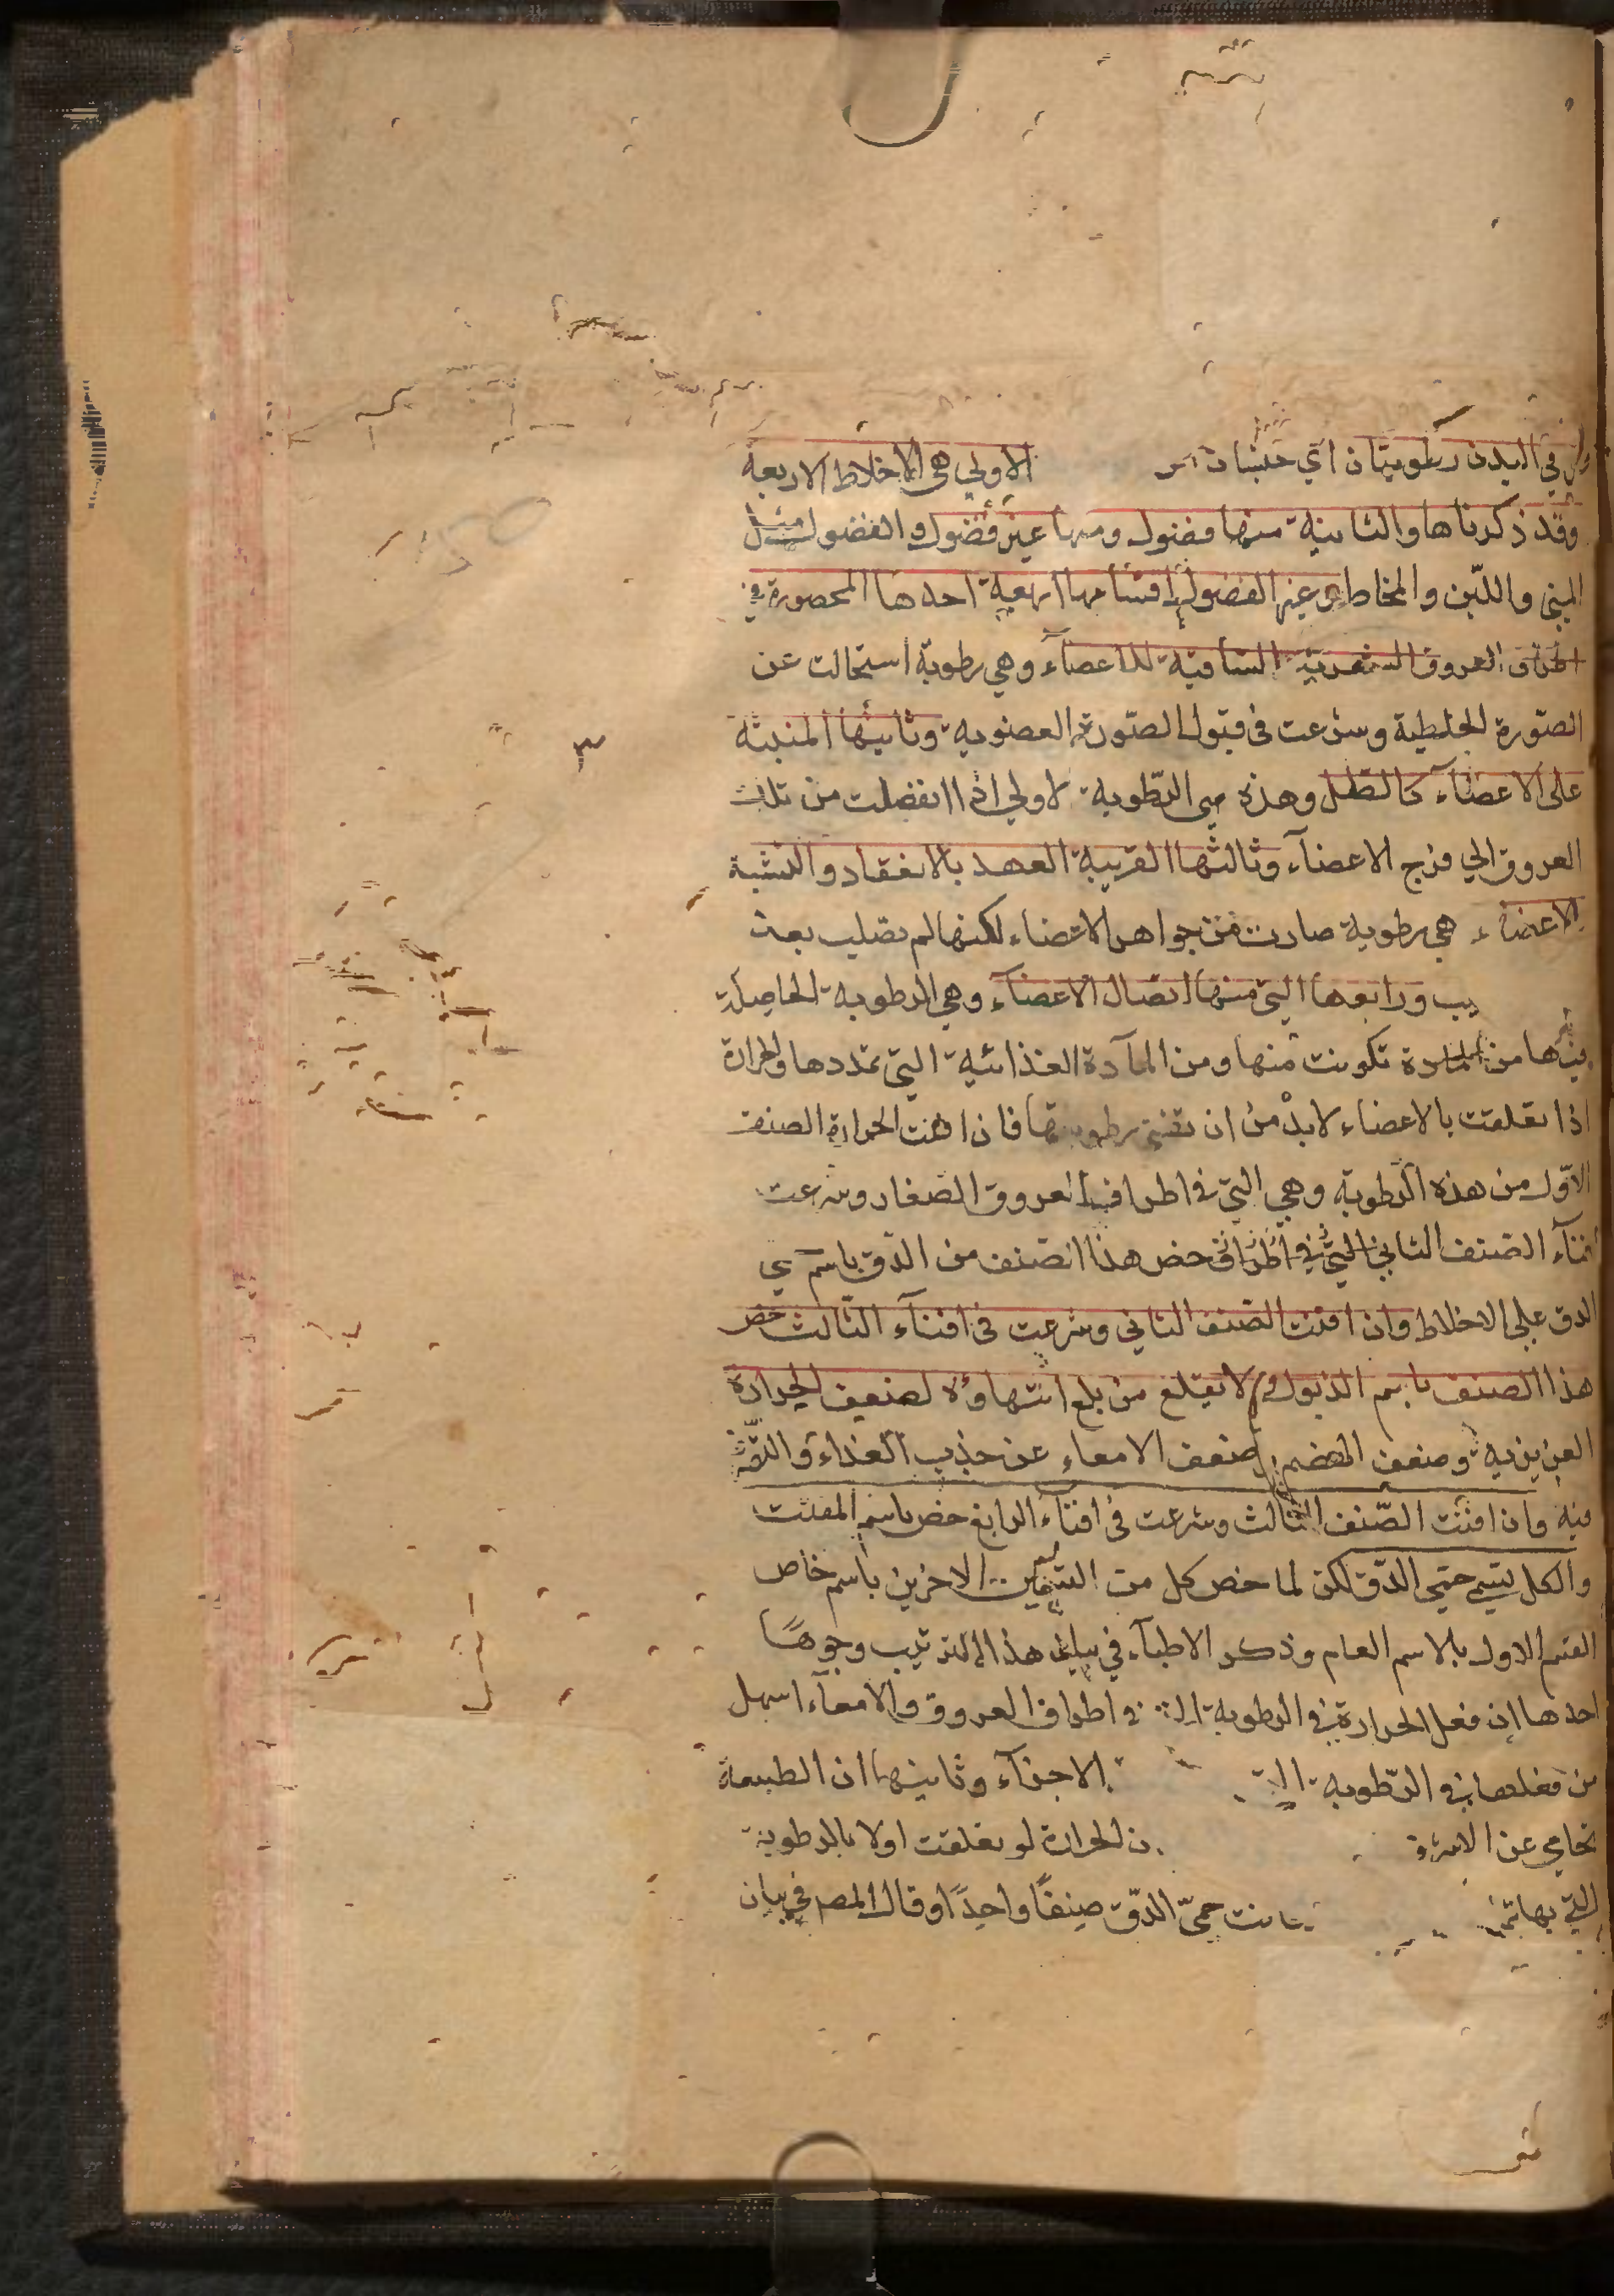 في البدن رطوبتان اي جنسان الاولي هي الاخلاط الاربعة
وقد ذكرناها والثانية منها فضول ومنها غير فضول والفضول مثل
المني واللبن والمخاط وغير الفضول اقسامها اربعة احدها المحصورة في
اطراف العروق الشعرية الساقية للاعضآء وهي رطوبة استحالت عن
الصورة الخلطية وشرعت في قبول الصورة العضوية وثانيها المنبثة
علي الاعضآء كالطل وهذه هي الرطوبة الاولي اذا انفصلت من تلك
العروق الي فرج الاعضآء وثالثها القريبة العهد بالانعقاد والتشبه
الاعضاء هي رطوبة صارت من جواهر الاعضاء لكنها لم تصلب بعد
ورابعها التي منها اتصال الاعضآء وهي الرطوبة الحاصلة
من تكونت منها ومن المآدة الغذائية التي تمددها والحرارة
اذا تعلقت بالاعضاء لابد من ان تفني رطوبتها فاذا افنت الحرارة الصنف
الاول من هذه الرطوبة وهي التي في اطراف العروق الصغار وشرعت
افنآء الصنف الثاني خص هذا الصنف من الدق باسم
الدق علي الاخلاط وان افنت الصنف الثاني وشرعت في افنآء الثالث خص
هذا الصنف باسم الذبول ولا يفلح من بلغ انتهاؤه لضعف الحرارة
الغريزية وضعف الهضم وضعف الامعاء عن جذب الغذاء
فيه وان افنت الصنف الثالث وشرعت في افناء الرابع خص باسم المفتت
والكل يسمي حمي الدق لكن لما خص كل من القسمين الاخرين باسم خاص
القسم الاول بالاسم العام وذكر الاطبآء في بيان هذا الترتيب وجوها
احدها ان فعل الحرارة في الرطوبة في اطراف العروق والامعآء اسهل
من فعلها في الرطوبة الاجزآء وثانيها ان الطبيعة
تحامي عن الحرارة لو تعلقت اولا بالرطوبة
التي بها حمي الدق صنفا واحدا وقال المص في بيان